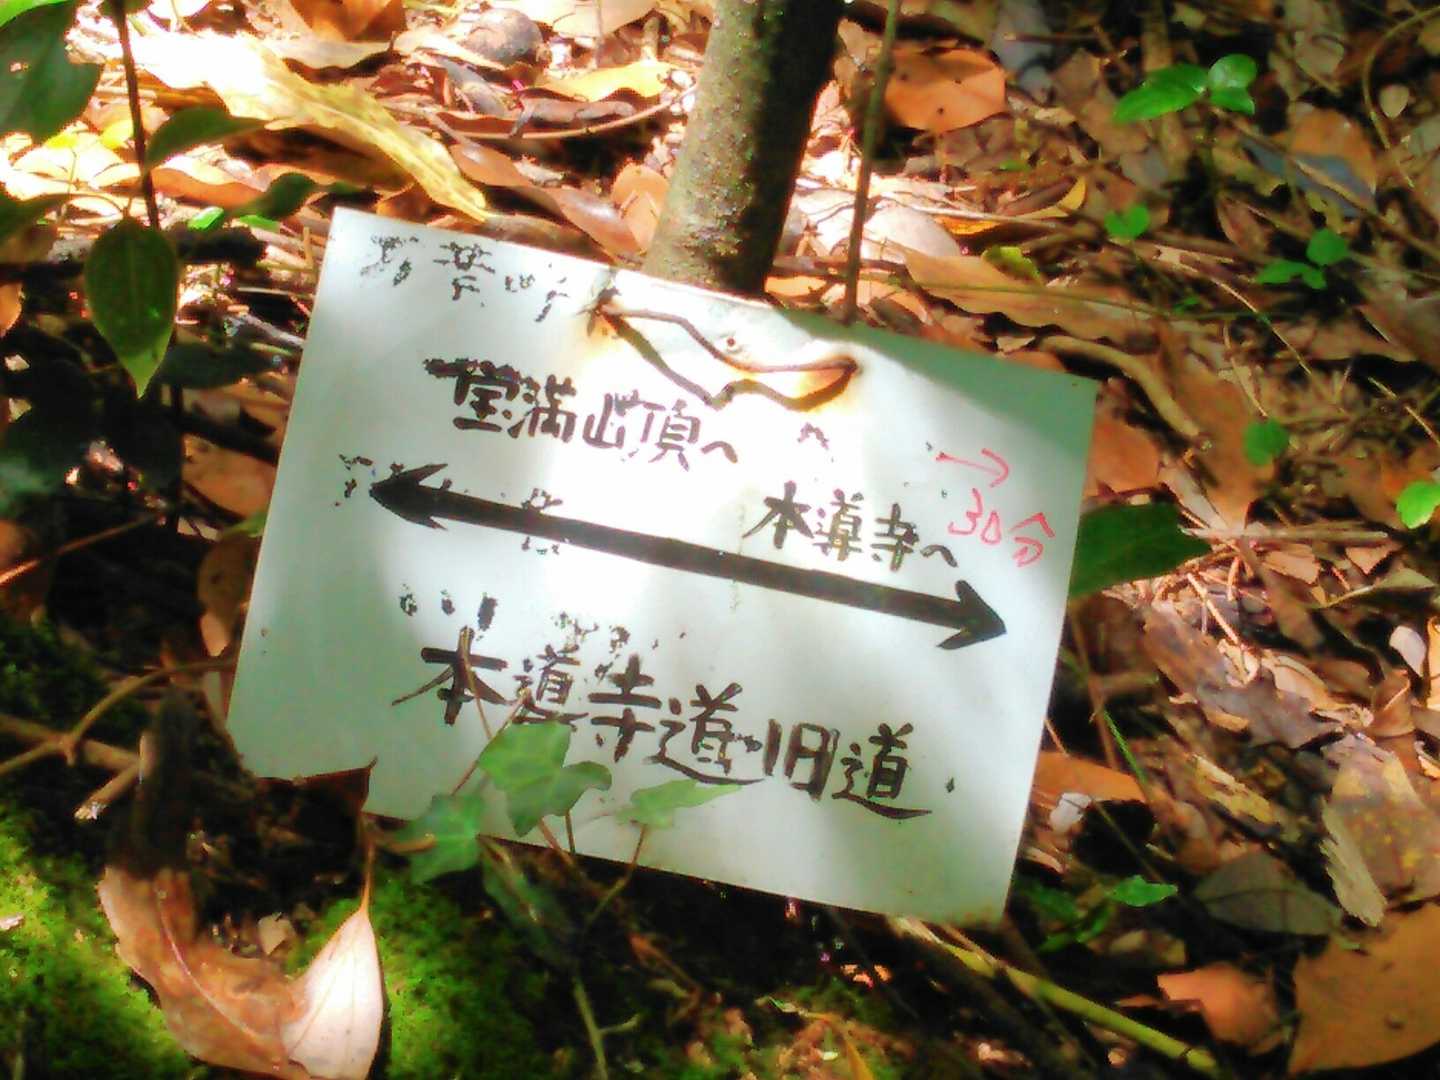 宝満山頂へ
→
30分
本導寺へ
本導寺道旧道